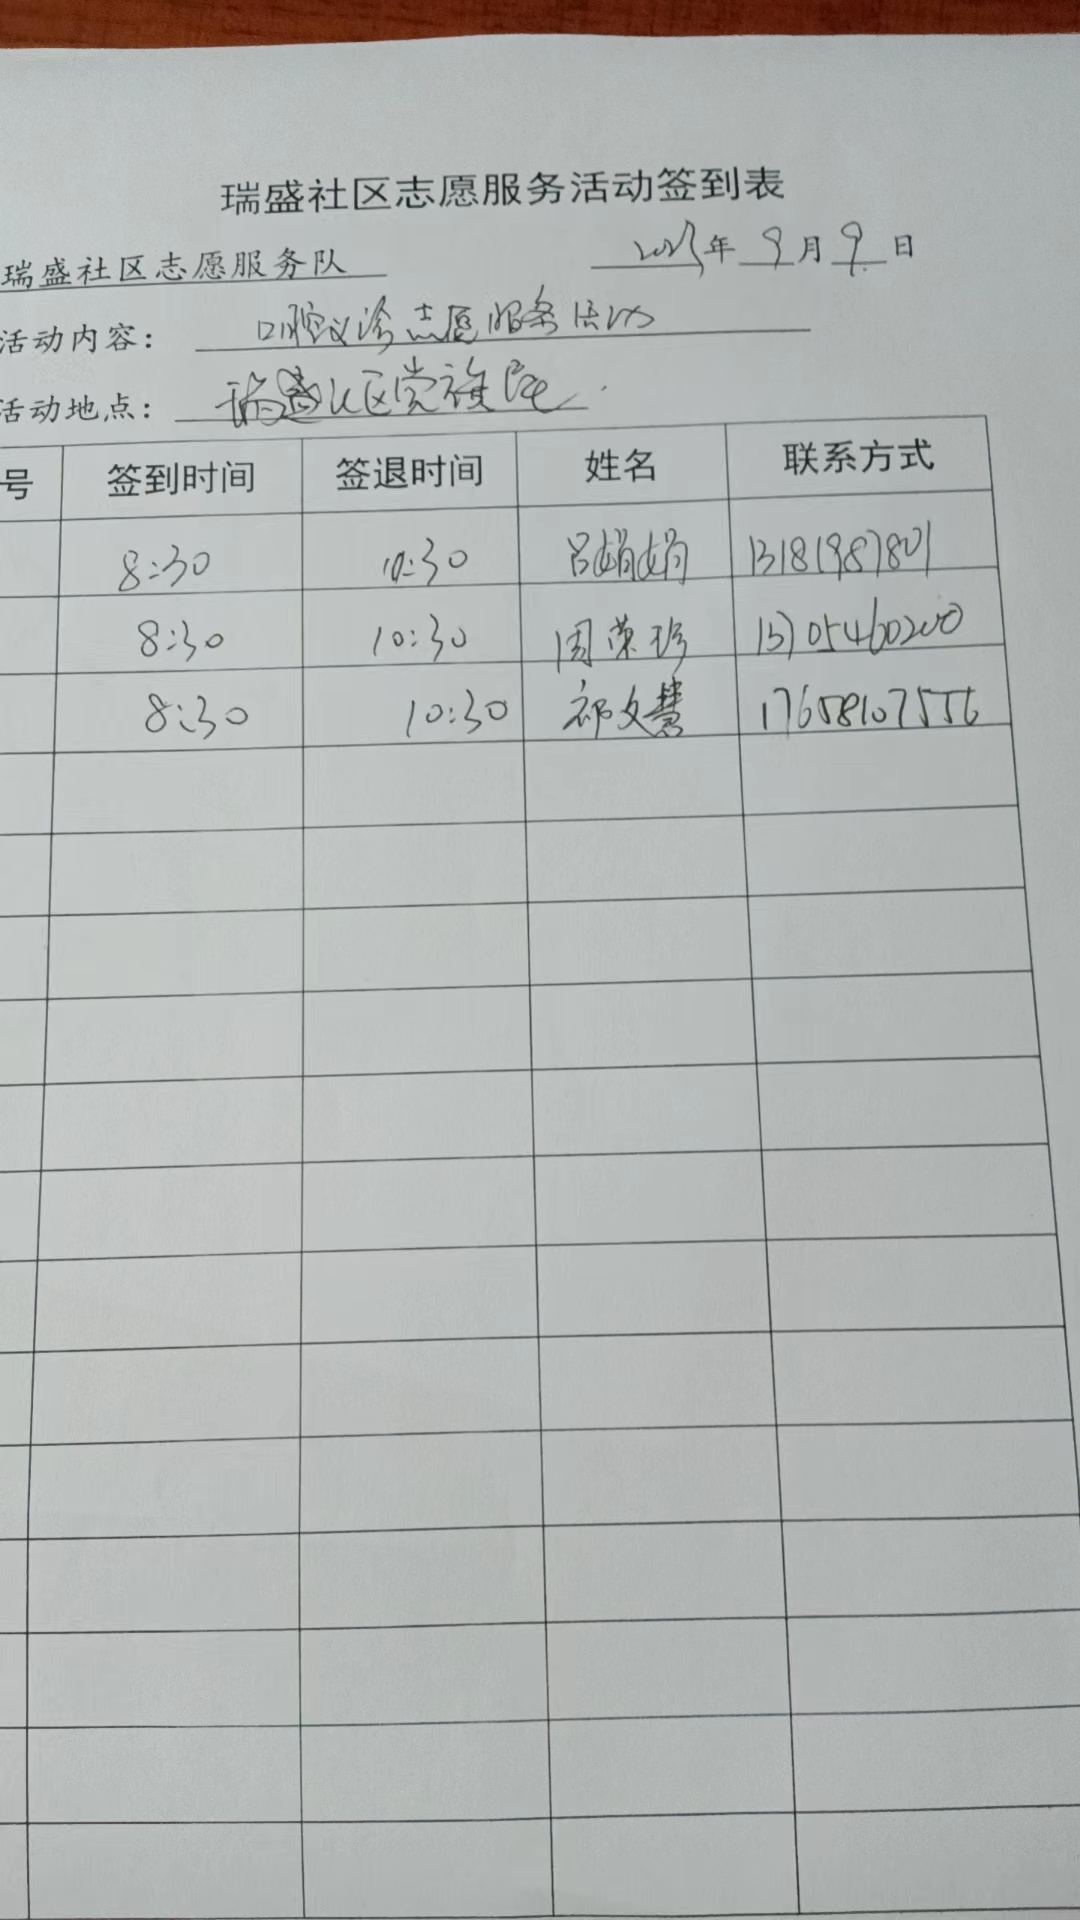 瑞盛社区志愿服务活动签到表
瑞盛社区志愿服务队 年 9 月 9 日
活动内容： 口腔义诊志愿服务活动
活动地点： 瑞盛社区党旗
号 签到时间 签退时间 姓名 联系方式
8:30 10:30 吕娟娟 13181987801
8:30 10:30 周荣珍
8:30 10:30 祁文慧 17658107556